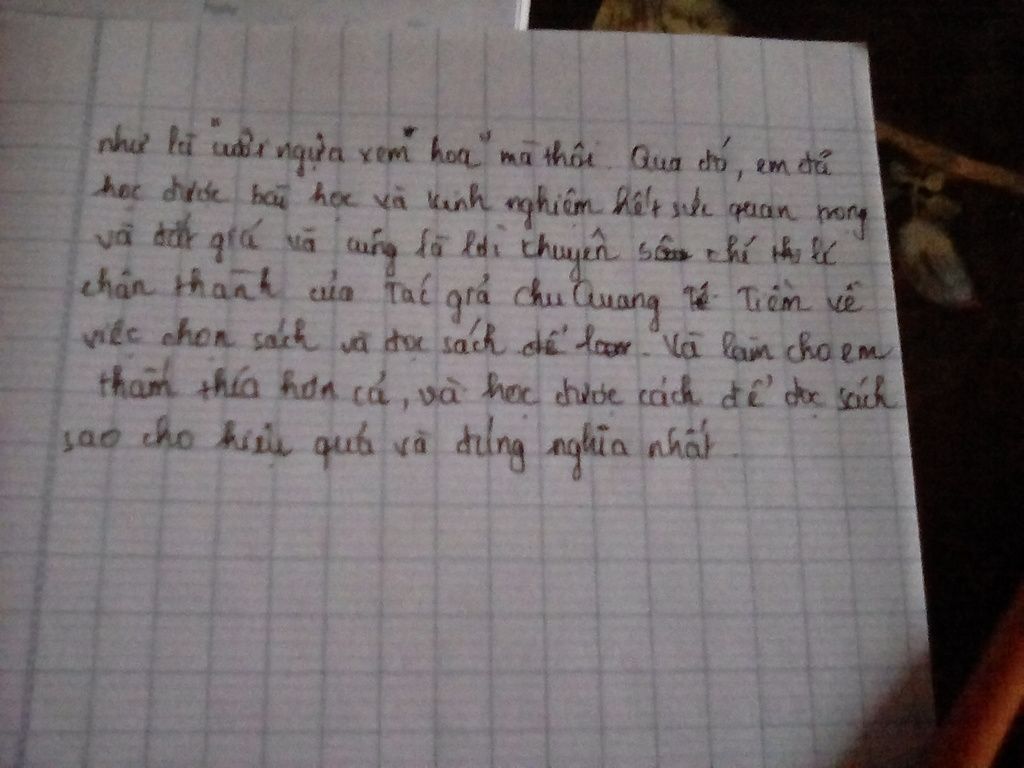 như kẻ "cưỡi ngựa xem" hoa" mà thôi. Qua đó, em đã
học được bài học và kinh nghiệm hết sức quan trọng
và đắt giá và cũng là lời chuyện chí
chân thành của Tác giả chu Quang Tiềm về
việc chọn sách và đọc sách để. Và làm cho em
thấm thía hơn cả, và học được cách để đọc sách
sao cho hiệu quả và đúng nghĩa nhất.